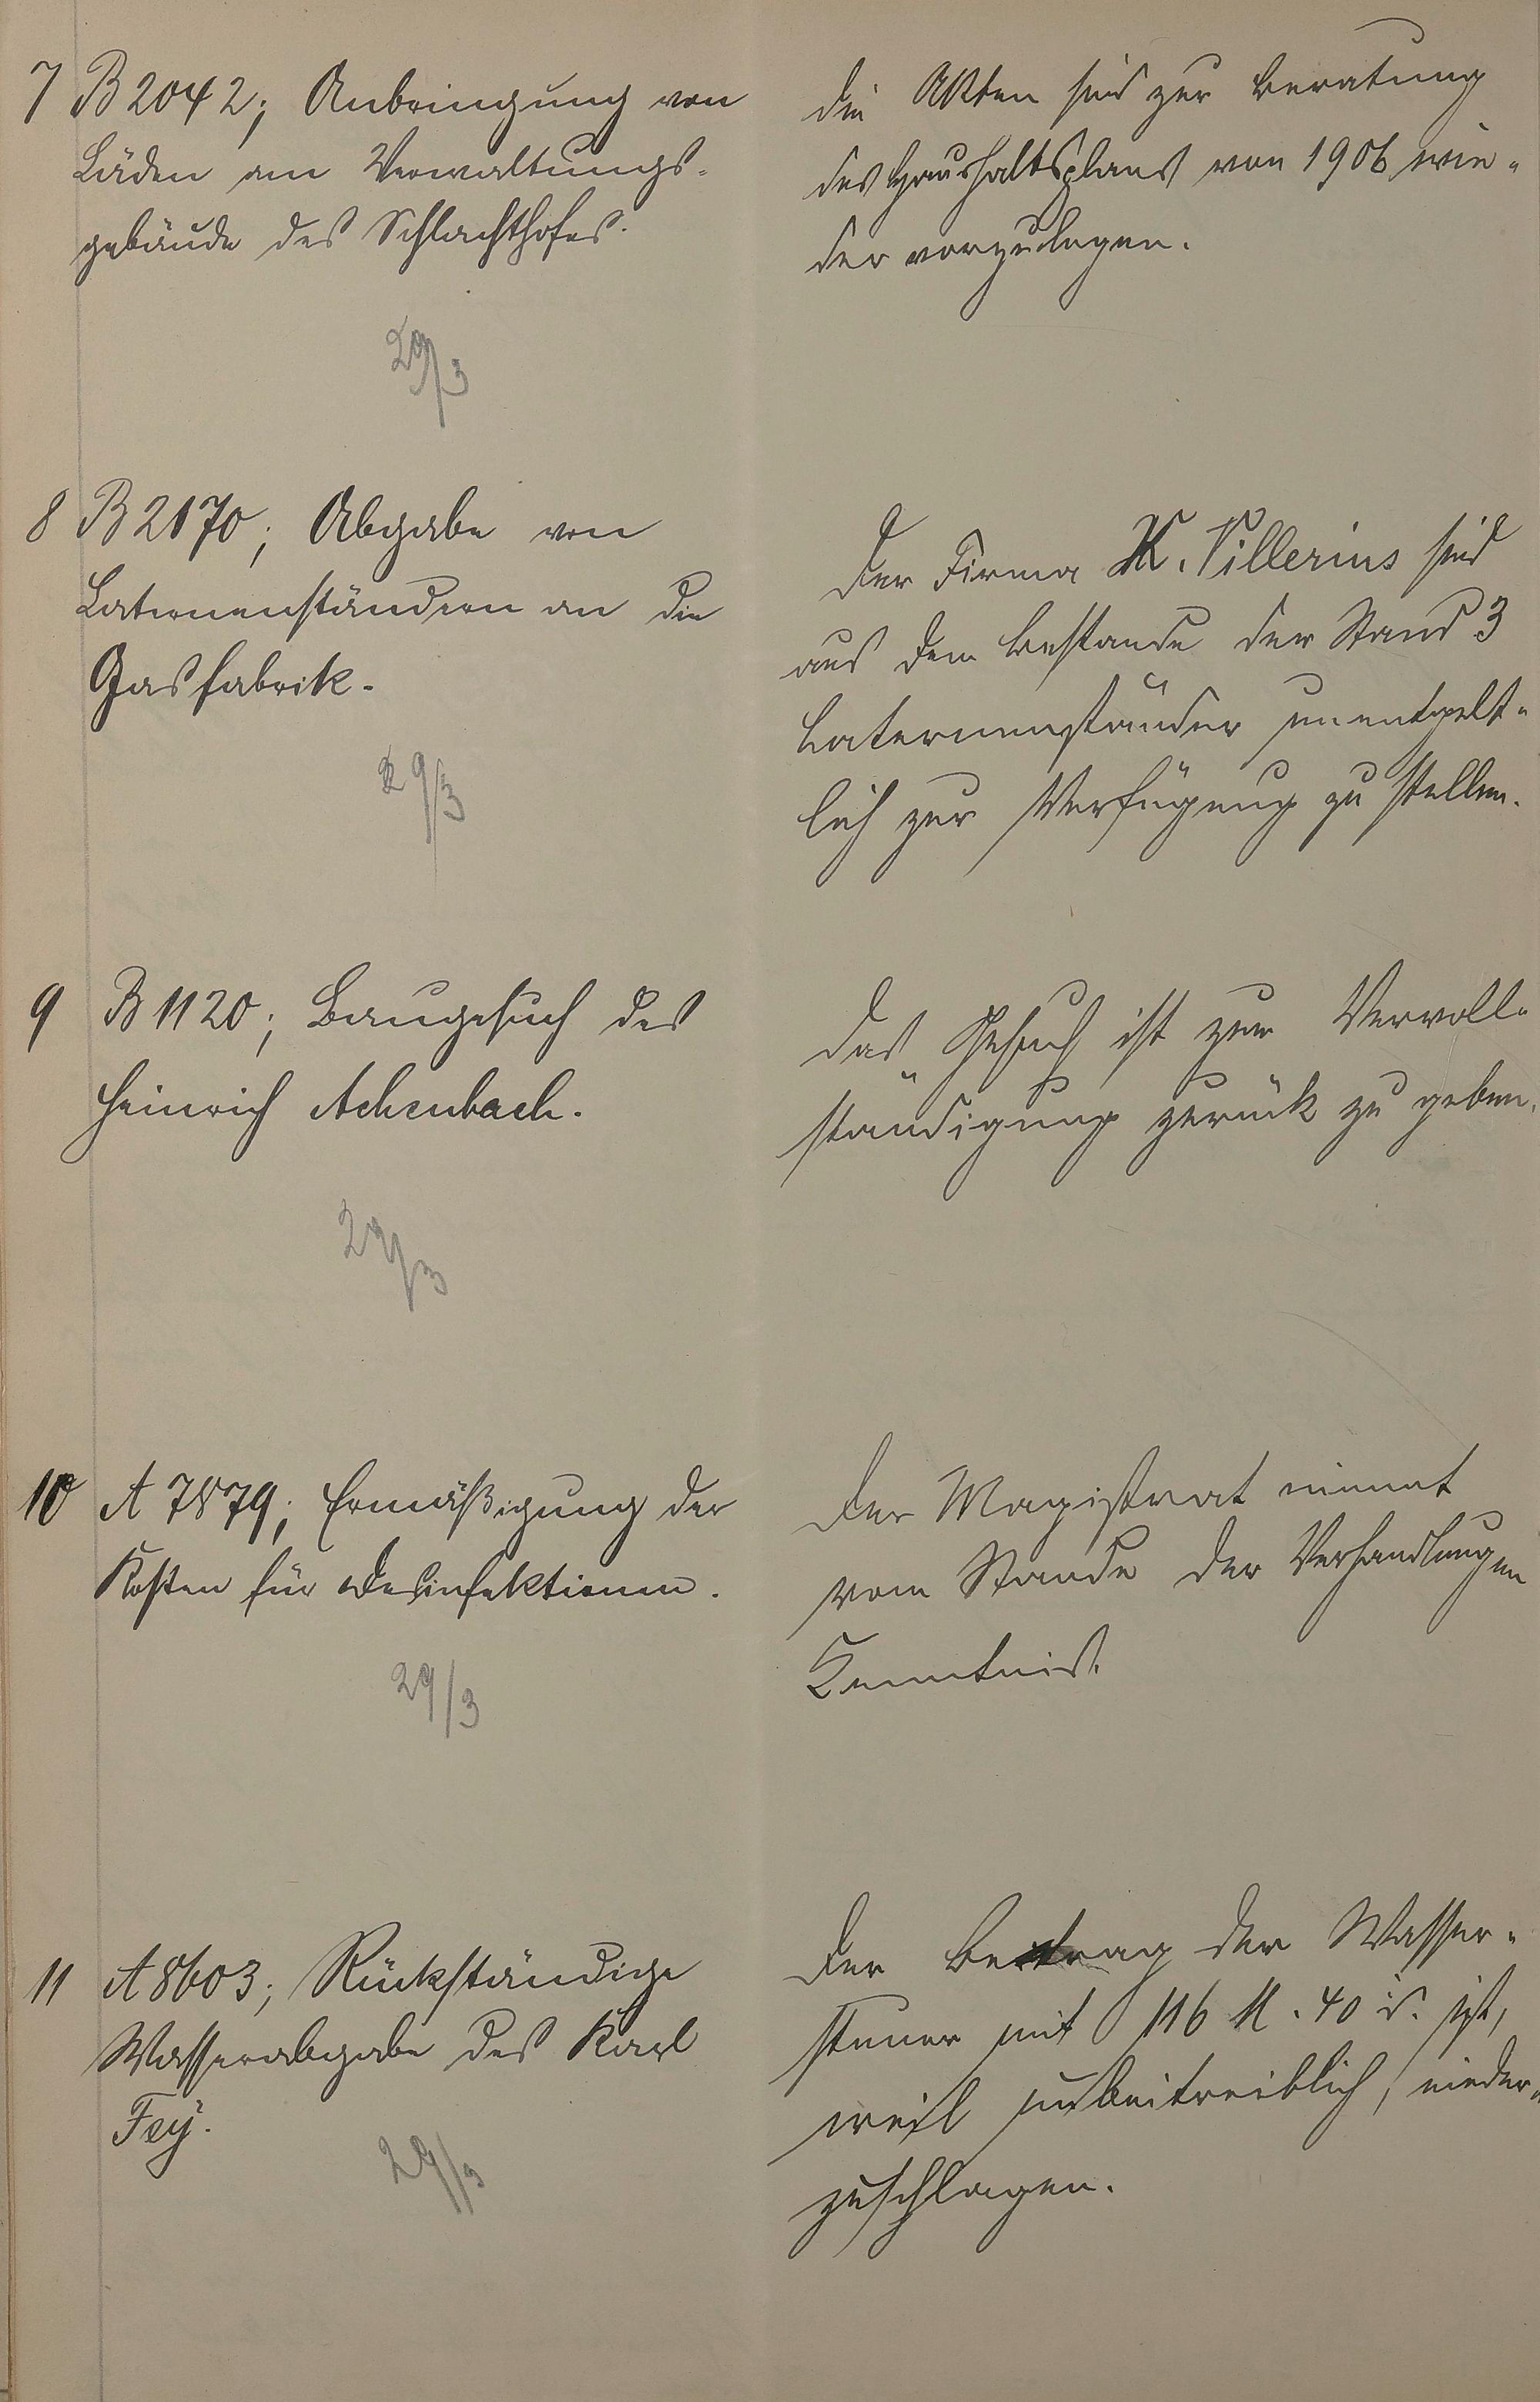 7 B 2042; Anbringung von
Läden am Verwaltungs-
gebäude des Schlachthofes.
29/3
die Akten sind zur Beratung
des Haushaltsplans von 1906 wie-
der vorzulegen.
8 B 2170; Abgabe von
Laternenständern an die
Gasfabrik.
29/3
Der Firma K. Villerius sind
aus dem Bestande der Stand 3
Laternenständer unentgelt-
lich zur Verfügung zu stellen.
9 B 1120; Baugesuch des
Heinrich Achenbach.
29/3
Das Gesuch ist zur Vervoll-
ständigung zurück zu geben.
10 A 7879; Ermäßigung der
Kosten für Desinfektionen.
29/3
Der Magistrat nimmt
vom Stande der Verhandlungen
Kenntnis.
11 A 8603; Rückständige
Wasserabgabe des Karl
Fey.
29/3
Der Betrag der Wasser-
steuer mit 116 M. 40 ist,
weil unbeitreiblich, nieder-
zuschlagen.